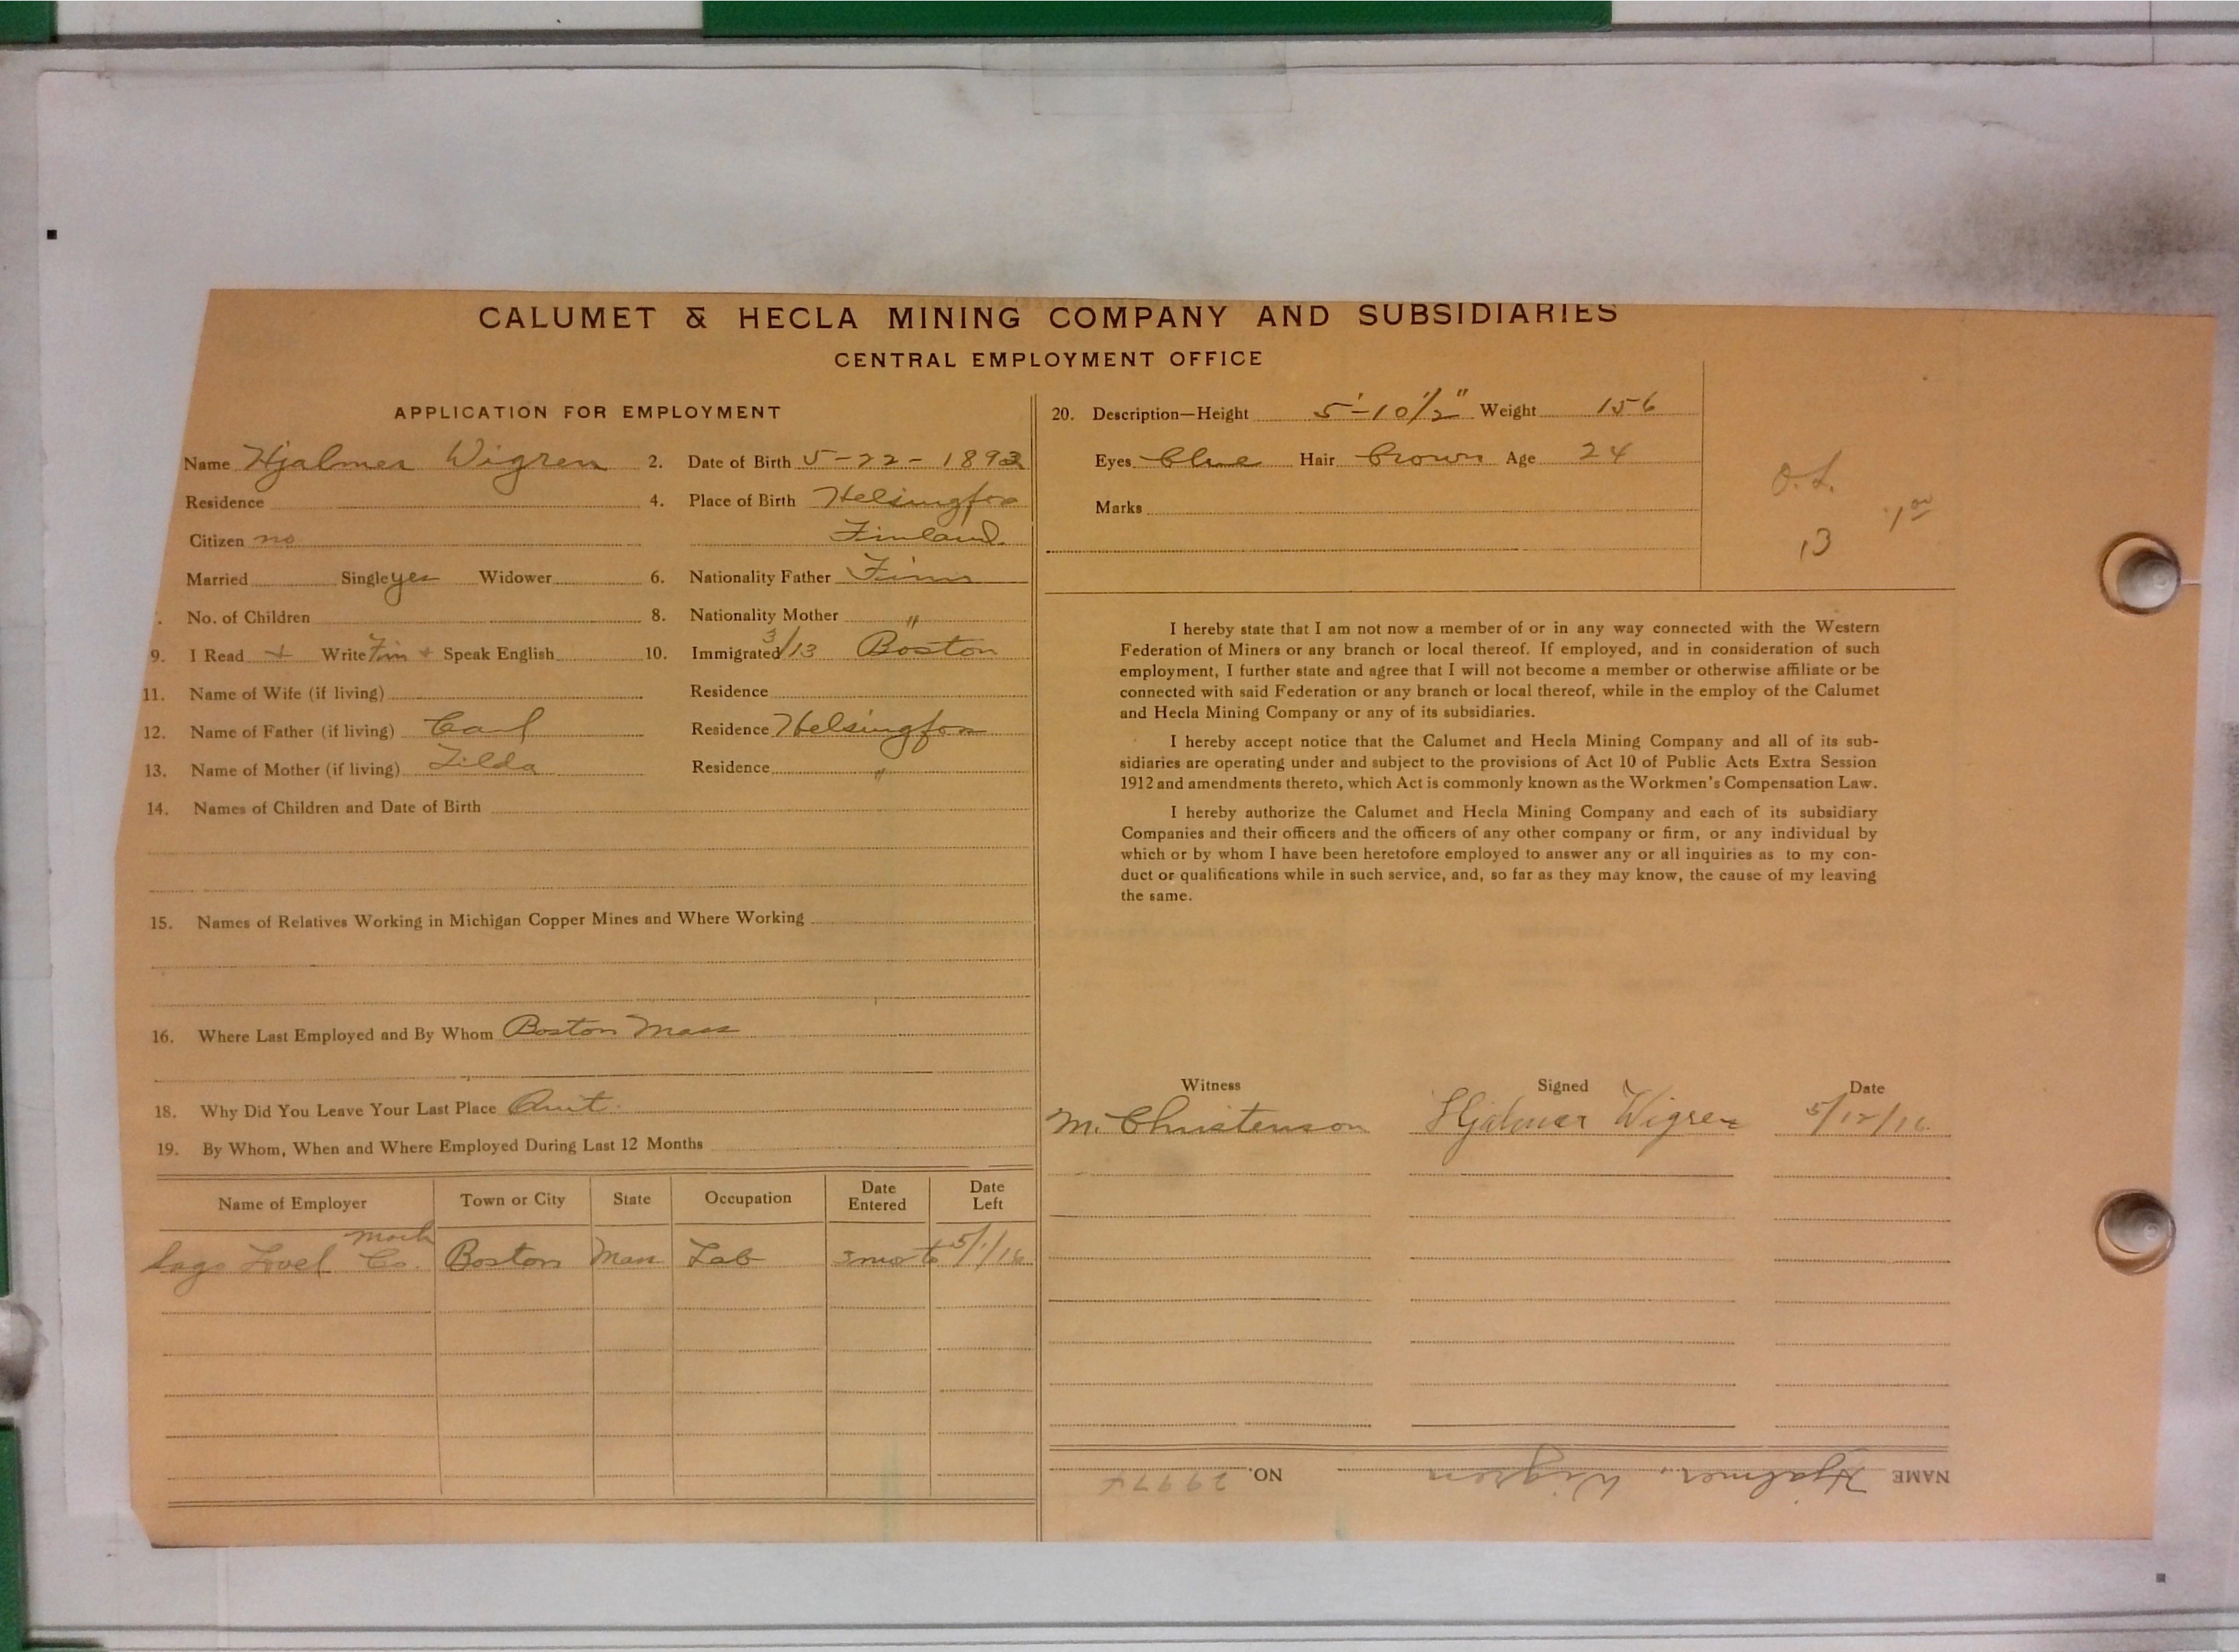 CALUMET & HECLA MINING COMPANY AND SUBSIDIARIES
CENTRAL EMPLOYMENT OFFICE
APPLICATION FOR EMPLOYMENT
Name Hjalmer Wigren 2. Date of Birth 5-22-1893
Residence 4. Place of Birth Helsingfos
Citizen no Finland
Married Single yes Widower 6. Nationality Father Finn
No. of Children 8. Nationality Mother "
9. I Read + Write Finn + Speak English 10. Immigrated 3/13 Boston
11. Name of Wife (if living) Residence
12. Name of Father (if living) Carl Residence Helsingfos
13. Name of Mother (if living) Tilda Residence "
14. Names of Children and Date of Birth
15. Names of Relatives Working in Michigan Copper Mines and Where Working
16. Where Last Employed and By Whom Boston Mass
18. Why Did You Leave Your Last Place Quit.
19. By Whom, When and Where Employed During Last 12 Months
Name of Employer Town or City State Occupation Date Entered Date Left
Co. Boston Mass Lab to 5/1/16
20. Description—Height 5'-10 1/2" Weight 156
Eyes Blue Hair Brown Age 24
Marks
O.L.
13
I hereby state that I am not now a member of or in any way connected with the Western
Federation of Miners or any branch or local thereof. If employed, and in consideration of such
employment, I further state and agree that I will not become a member or otherwise affiliate or be
connected with said Federation or any branch or local thereof, while in the employ of the Calumet
and Hecla Mining Company or any of its subsidiaries.
I hereby accept notice that the Calumet and Hecla Mining Company and all of its sub-
sidiaries are operating under and subject to the provisions of Act 10 of Public Acts Extra Session
1912 and amendments thereto, which Act is commonly known as the Workmen's Compensation Law.
I hereby authorize the Calumet and Hecla Mining Company and each of its subsidiary
Companies and their officers and the officers of any other company or firm, or any individual by
which or by whom I have been heretofore employed to answer any or all inquiries as to my con-
duct or qualifications while in such service, and, so far as they may know, the cause of my leaving
the same.
Witness Signed Date
M. Christenson Hjalmar Wigren 5/12/16
NAME Hjalmer Wigren NO. 29974